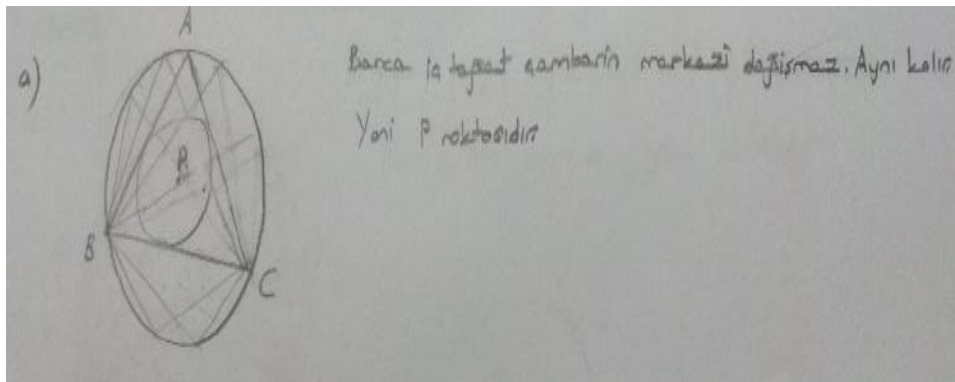 A
a)
Barca iç teğet çemberin merkezi değişmez. Aynı kalır
Yani P noktasıdır
P
B
C